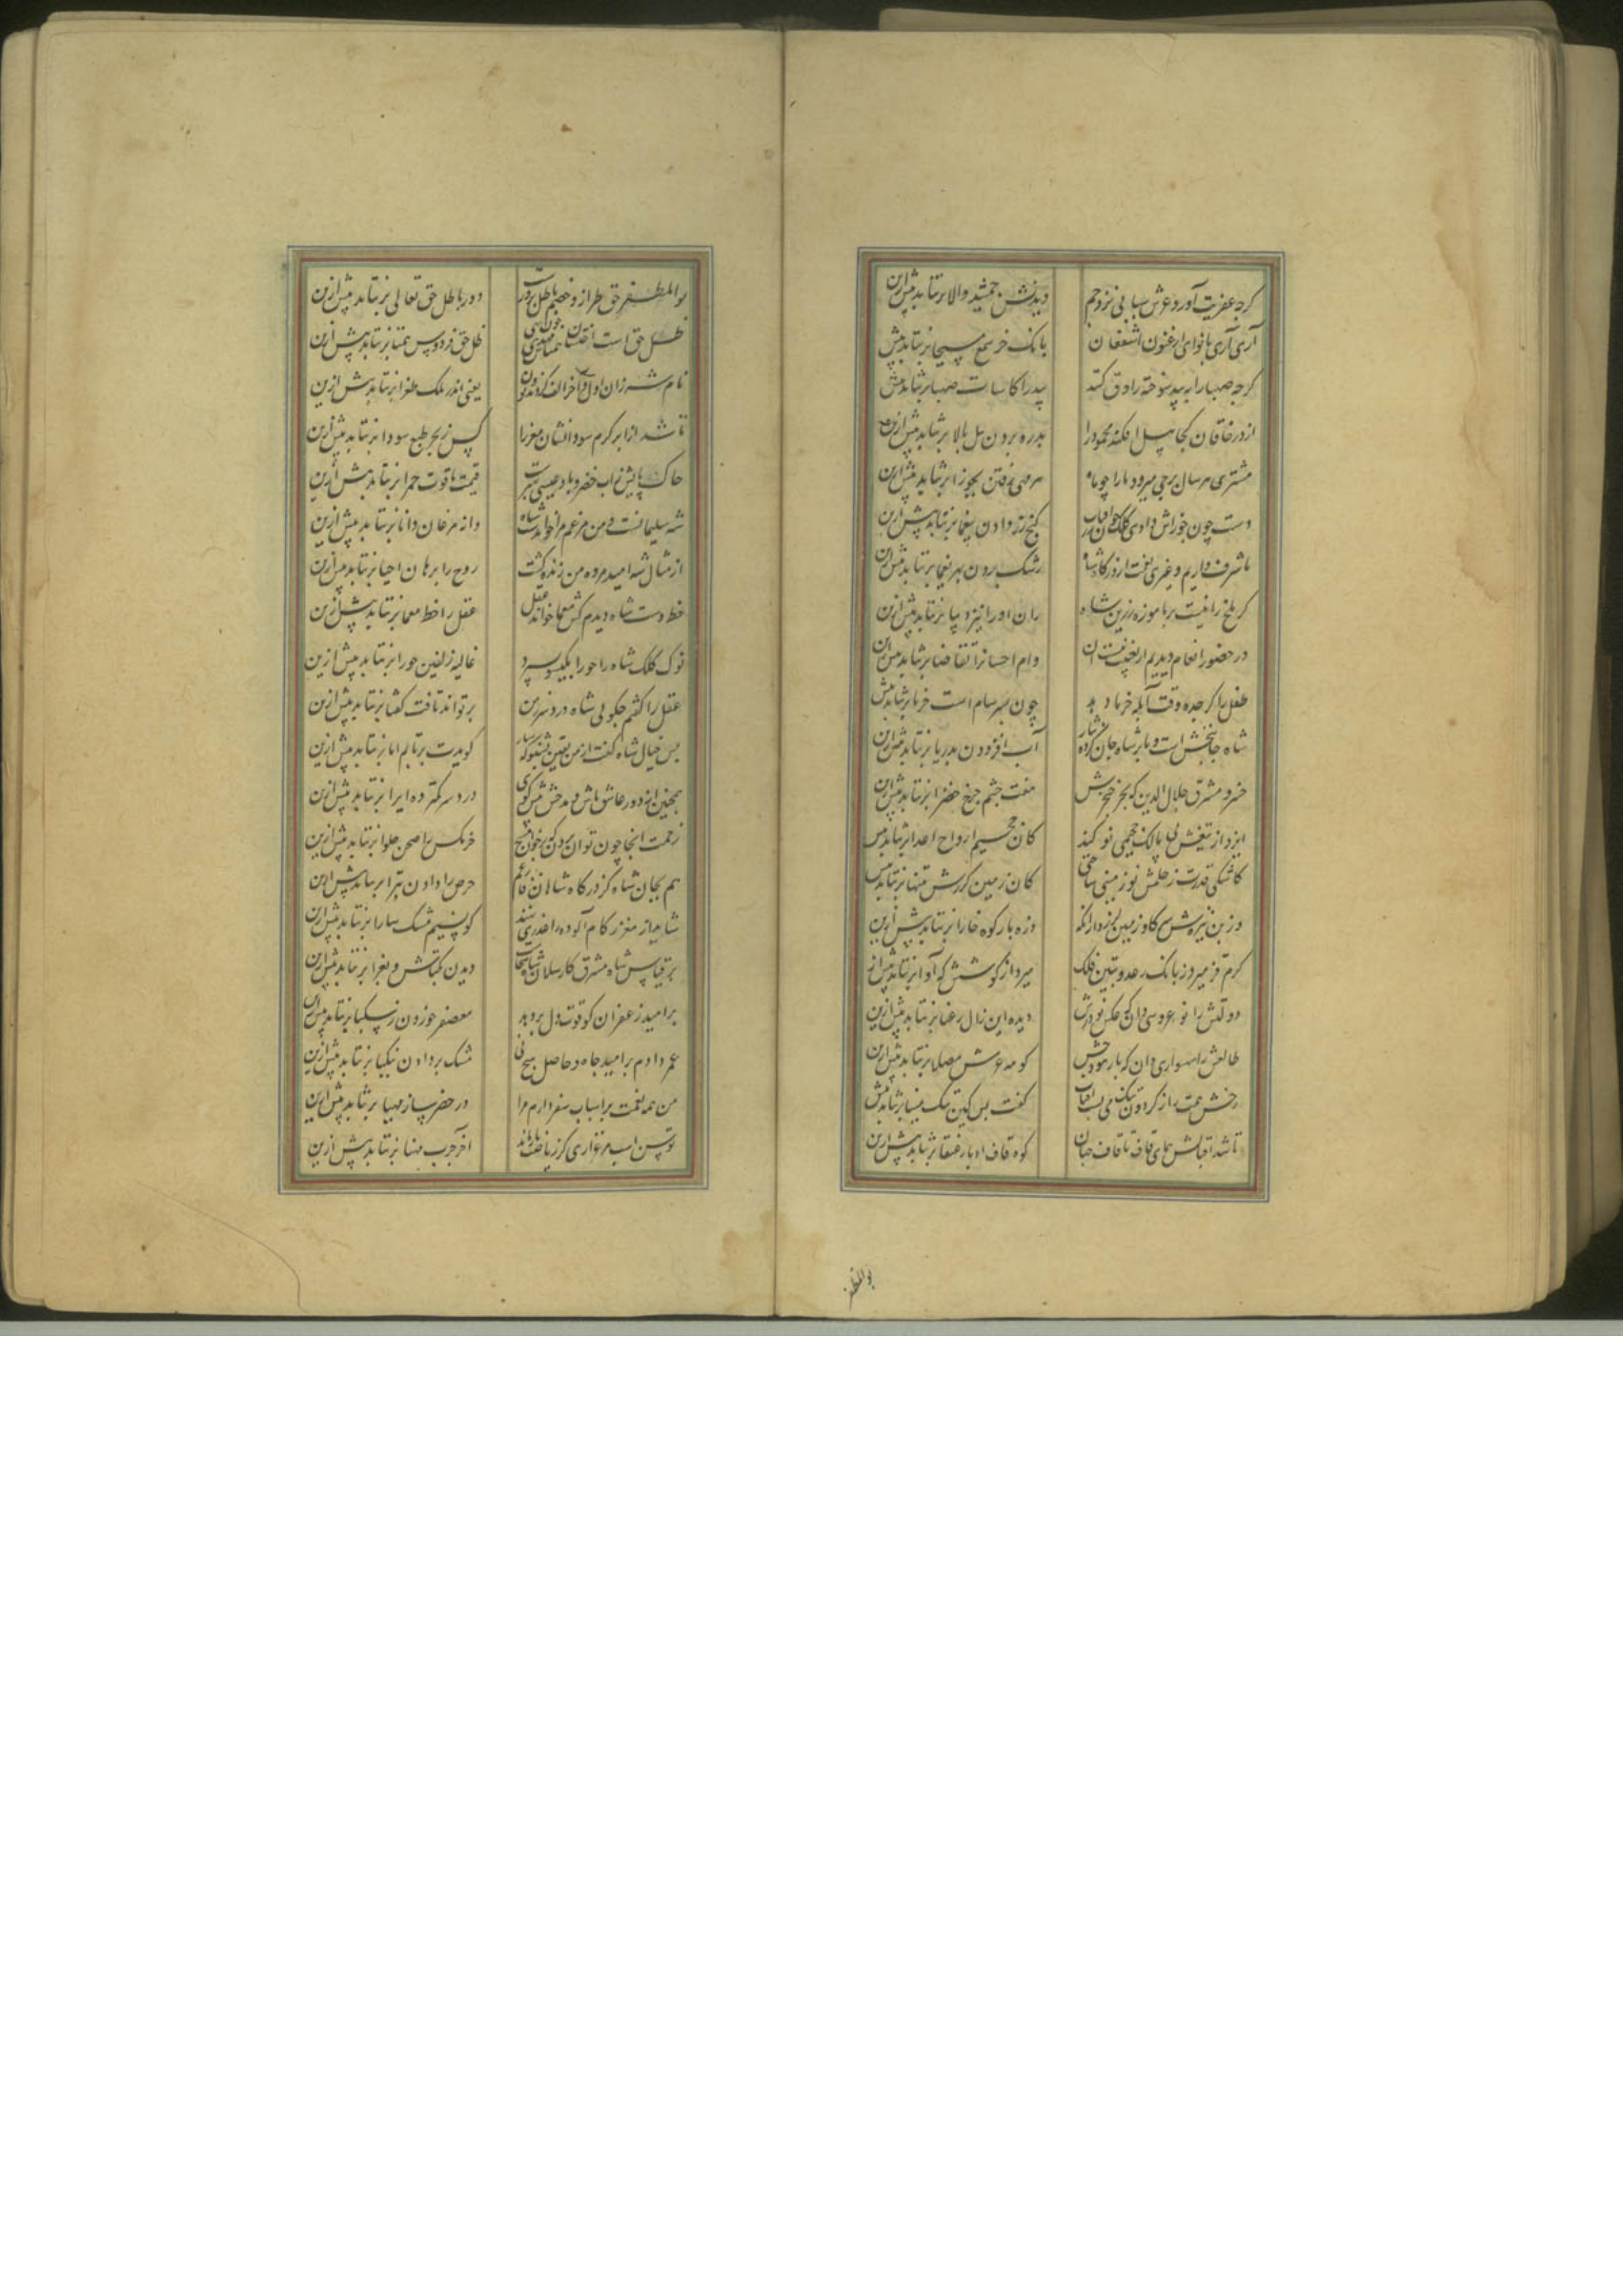 کرچه عفریت آورد عرش سبایی نزد جم دیدنش جمشید والا برنتابد بیش ازین
آری آری با نوای ارغنون اسقفان بانک خر سمع مسیحا برنتابد بیش
کرچه صهبا را به بید سوخته راوق کنند بید را کاسات صهبا برنتابد بیش
از در خاقان کجا پیل افکند محمود را بدره بردن پیل بالا برنتابد بیش ازین
مشتری هر سال برجی میرود ما را چو ماه هر مهی رفتن بجوزا برنتابد بیش ازین
دست چون جوزاش دادی کلک کنج زر دادن یغما برنتابد بیش ازین
با شرف داریم و غیری نعت ازو رشک بردن بهر نعما برنتابد بیش ازین
کر بلخ را نیست بر پا موزه زرین شاه ران او رانین دیبا برنتابد بیش ازین
در حضور انعام دیدیم ار بغیبت نیست آن وام احسان را تقاضا برنتابد بیش ازین
طفل را کر چه وقت آبله خرما دهند چون بسرسام است خرما برنتابد بیش
شاه جانبخش است و ما بر شاه جان کرده نثار آب افزودن بدریا برنتابد بیش ازین
خسرو مشرق جلال الدین که برق خنجرش هفت چشم چرخ خضرا برنتابد بیش ازین
ایزد از تیغش پی مالک جحیمی نو کند کان جحیم ارواح اعدا برنتابد بیش
کاشکی قدرت ز حلمش نو زمینی ساختی کان زمین کز رش تنها برنتابد بیش
وز بن نیزه‌ش سر کاو زمین لرزد از انکه وزه بار کوه خارا برنتابد بیش ازین
کرم قز میرد ز بانک رعد و تنین فلک میرد از کوشش که آوا برنتابد بیش از
دولتش را نو عروسی دان که عکس زیورش دیده این زال رعنا برنتابد بیش ازین
طالعش را شهسواری دان که بار هودجش کوهه عرش معلا برنتابد بیش ازین
رخش همت را ز کردون تنک می بست آفتاب کفت بس کین تنک پهنا برنتابد بیش
تا شد اقبالش همای قاف تا قاف جهان کوه قاف ادبار عنقا برنتابد بیش ازین
بوالمظفر
بوالمظفر حق طراز و خصم باطل پرورست دور باطل حق تعالی برنتابد بیش ازین
ظل حق است اخستان همتاش مهدی چون نهی ظل حق فردوس همتا برنتابد بیش ازین
نام شه زان اول و آخر الف کردند و نون یعنی اندر ملک طغرا برنتابد بیش ازین
تا شد از ابر کرم سودا نشان مغز را کس ز بحر طبع سودا برنتابد بیش ازین
خاک پایش ز آب خضر و باد عیسی بهترست قیمت یاقوت حمرا برنتابد بیش ازین
شه سلیمانست و من مرغم مرا خواند شاه دانه مرغان دانا برنتابد بیش ازین
از مثال شه امید مرده من زنده کشت روح را برهان احیا برنتابد بیش ازین
خط دست شاه دیدم کش معما خواند عقل عقل را خط معما برنتابد بیش ازین
نوک کلک شاه را حورا بکیسو بسترد غالیه زلفین حورا برنتابد بیش ازین
عقل را کفتم چکویی شاه درد سر ز من برتواند تافت کفتا برنتابد بیش ازین
بس خیال شاه کفت از من یقین بشنو که شاه کویدت برتابم اما برنتابد بیش ازین
همچنین از دور عاشق باش و مدحش بیش کوی درد سر کمتر ده ایرا برنتابد بیش ازین
زحمت آنجا چون توان بردن که بر خوان مسیح خرمکس را صحن حلوا برنتابد بیش ازین
هم بجان شاه کز درکاه شاهان فارغم حرص را دادن تبرا برنتابد بیش ازین
شاید از مغز زکام آلوده را عذری نهند کو نسیم مشک سارا برنتابد بیش ازین
بر قیاس شاه مشرق کارسلان شاه سخاست دیدن بکتاش و بغرا برنتابد بیش ازین
بر امید زعفران کو قوت دل بر دهد معصفر خوردن ز سکبا برنتابد بیش ازین
عمر دادم بر امید جاه و حاصل هیچ نی مشک بر دادن بنکبا برنتابد بیش ازین
من همه نعمت بر اسباب سفر دارم مرا در حضر ساز مهیا برنتابد بیش ازین
آخر چرب مهنا برنتابد بیش ازین